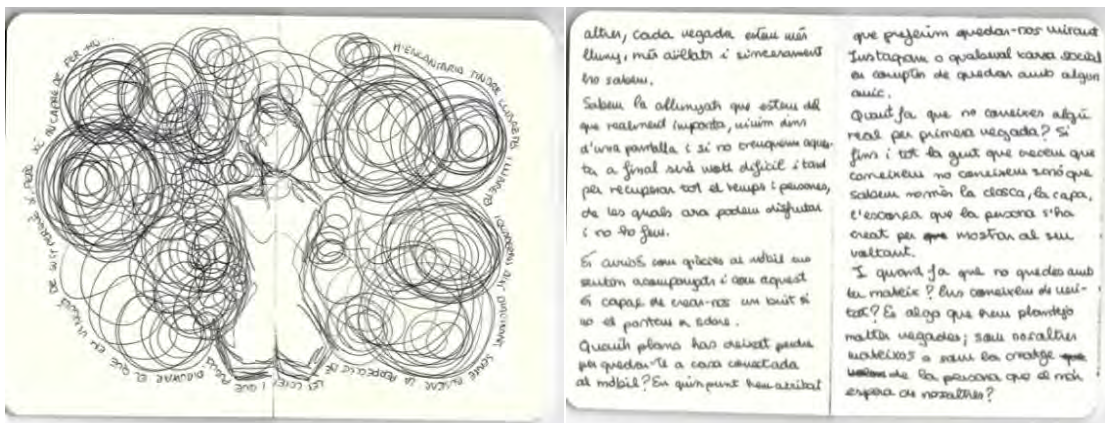 M'ENCANTARIA TINDRE
altres, cada vegada estem més
lluny, més aïllats i sincerament
ho sabem.
Sabem la allunyats que estem del
que realment importa, vivim dins
d'una pantalla i si no creuquem aques-
ta a final serà molt difícil i tard
per recuperar tot el temps i persones,
de les quals ara podem disfrutar
i no ho fem.
És curiós com gràcies al mòbil ens
sentim acompanyats i com aquest
és capaç de crear-nos un buit si
no el portem a sobre.
Quants plans has deixat perdre
per quedar-te a casa conectada
al mòbil? En quin punt hem arribat
que preferim quedar-nos mirant
Instagram o qualsevol xarxa social
en comptes de quedar amb algun
amic.
Quant fa que no coneixes algú
real per primera vegada? Si
fins i tot la gent que creem que
coneixem no coneixem sinó que
sabem només la closca, la capa,
l'escorça que la persona s'ha
creat per mostrar al seu
voltant.
I quant fa que no quedes amb
tu mateix? Ens coneixem de veri-
tat? És algo que hem plantejo
moltes vegades; som nosaltres
mateixos o som la imatge
de la persona que el món
espera de nosaltres?